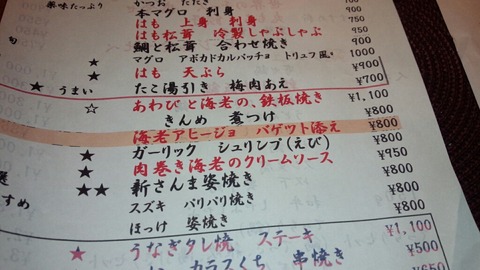 薬味たっぷり かつお たたき
本マグロ 刺身 750
はも 上身 刺身 950
はも松茸 冷製しゃぶしゃぶ 750
鯛と松茸 合わせ焼き 900
マグロ アボカドカルパッチョ トリュフ風 1000
★ はも 天ぷら ¥900
★ うまい たこ湯引き 梅肉あえ ¥700
☆ あわびと海老の、鉄板焼き ¥1,100
きんめ 煮つけ ¥800
海老アヒージョ バゲット添え ¥800
★ ガーリック シュリンプ(えび) ¥800
★ 肉巻き海老のクリームソース ¥950
★★ 新さんま姿焼き ¥800
すめ スズキ パリパリ焼き ¥800
ほっけ 姿焼き ¥800
★ うなぎタレ焼 ステーキ ¥1,100
カラスくち 串焼き ¥500
¥650